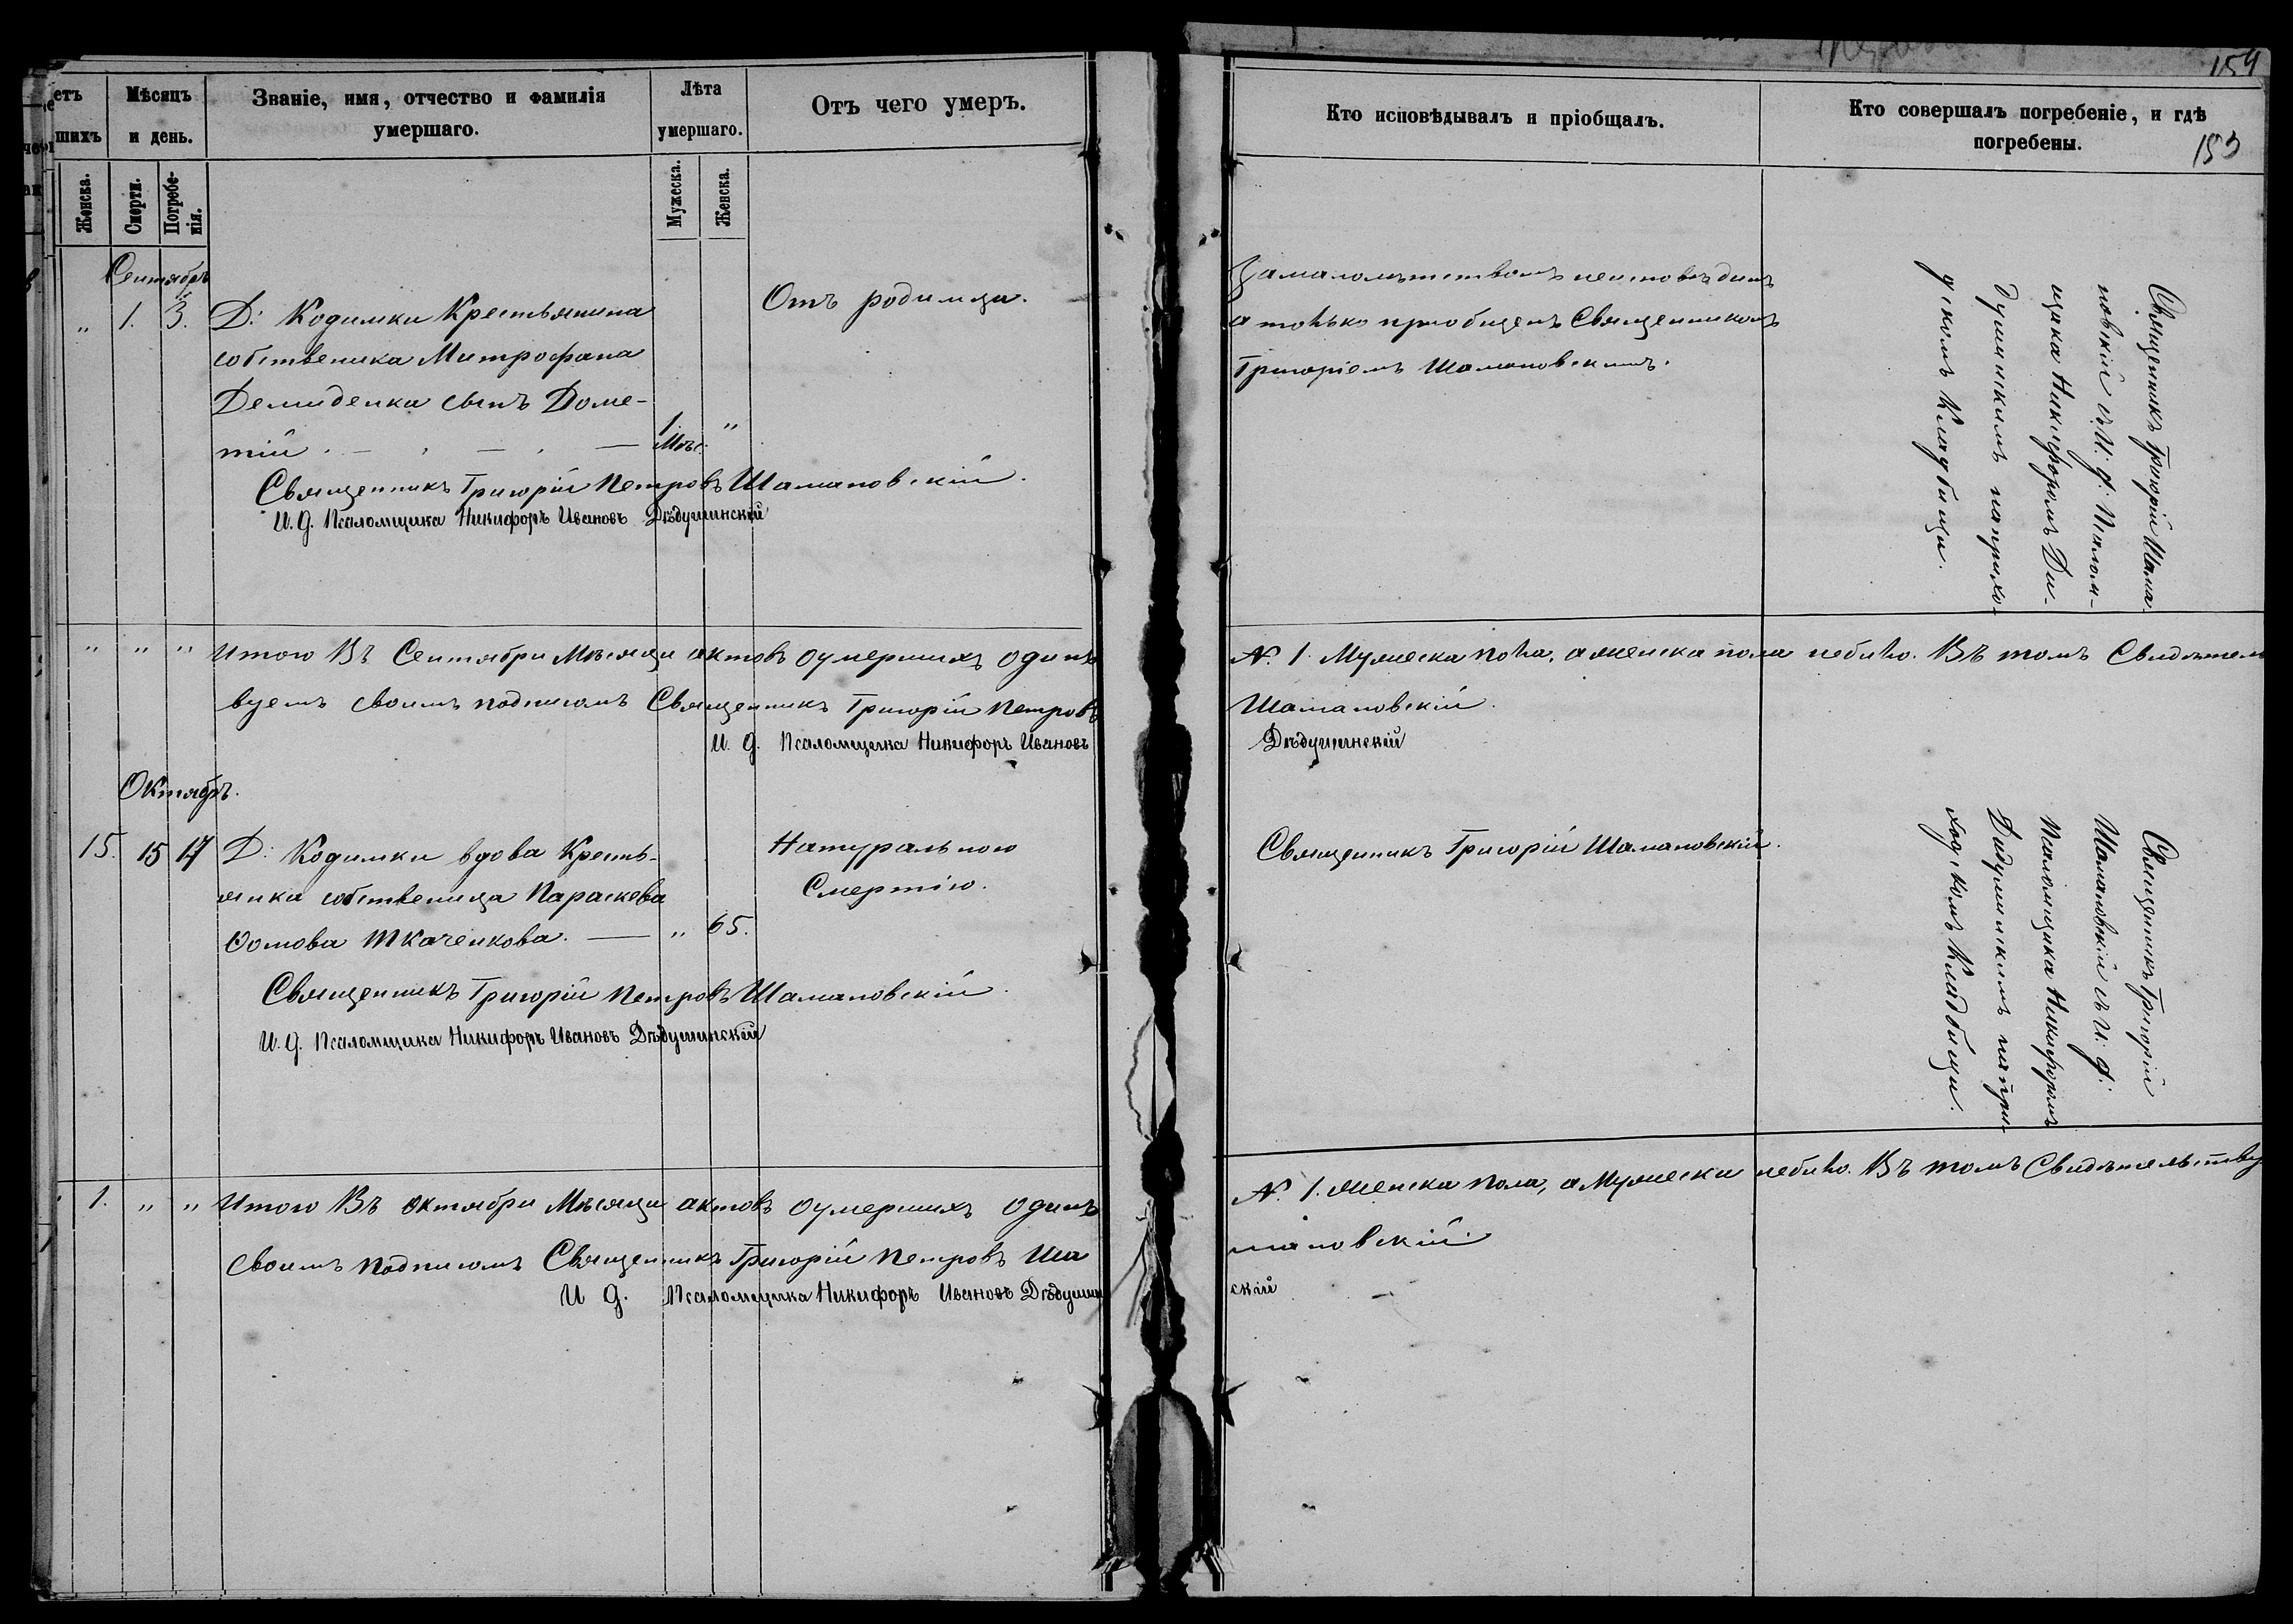 154
153
етъ
шихъ
Женска.
Мѣсяцъ
и день.
Смерти.
Погребе-
нія.
Званіе, имя, отчество и фамилія
умершаго.
Лѣта
умершаго.
Мужеска.
Женска.
Отъ чего умеръ.
Кто исповѣдывалъ и пріобщалъ.
Кто совершалъ погребеніе, и гдѣ
погребены.
Сентябрь
" 1. 3. Д: Кодимки Крестьянина
собственика Митрофана
Демиденка сынъ Доме-
тій — — — 1. "
Мѣс.
Отъ родимца.
Священникъ Григорій Петровъ Шамановскій.
И. д. Псаломщика Никифоръ Ивановъ Дѣдушинскій
Замалолѣтствомъ неисповѣдинъ
а только приобщенъ Священникомъ
Григоріемъ Шамановскимъ.
Священникъ Григорій Шама-
новскій съ И. д. Псалом-
щика Никифоромъ Ди-
душинскимъ наприхо-
дскомъ Кладбищи.
" " " Итого Въ Сентябри Мѣсяци актовъ оумершихъ одинъ
N. 1. Мужеска пола, а женска пола небыло. Въ томъ Свидѣтель
вуемъ своимъ подписомъ Священникъ Григорій Петровъ
Шамановскій.
И. д. Псаломщика Никифоръ Ивановъ
Дѣдушинскій
Октябрь.
15. 15 17 Д: Кодимки вдова Кресть-
янка собственица Параскева
Ѳомова Ткаченкова. — " 65.
Натуральною
Смертію.
Священникъ Григорій Петровъ Шамановскій.
И. д. Псаломщика Никифоръ Ивановъ Дѣдушинскій
Священникъ Григорій Шамановскій.
Священникъ Григорій
Шамановскій съ И. д.
Псаломщика Никифоромъ
Дидушинскимъ напри-
ходскомъ Кладбищи.
1. " " Итого Въ Октябри Мѣсяци актовъ оумершихъ одинъ
N. 1. женска пола, а Мужеска небыло. Въ томъ Свидѣтельству
своимъ подписомъ Священникъ Григорій Петровъ Ша
мановскій.
И д. Псаломщика Никифоръ Ивановъ Дѣдушин
скій